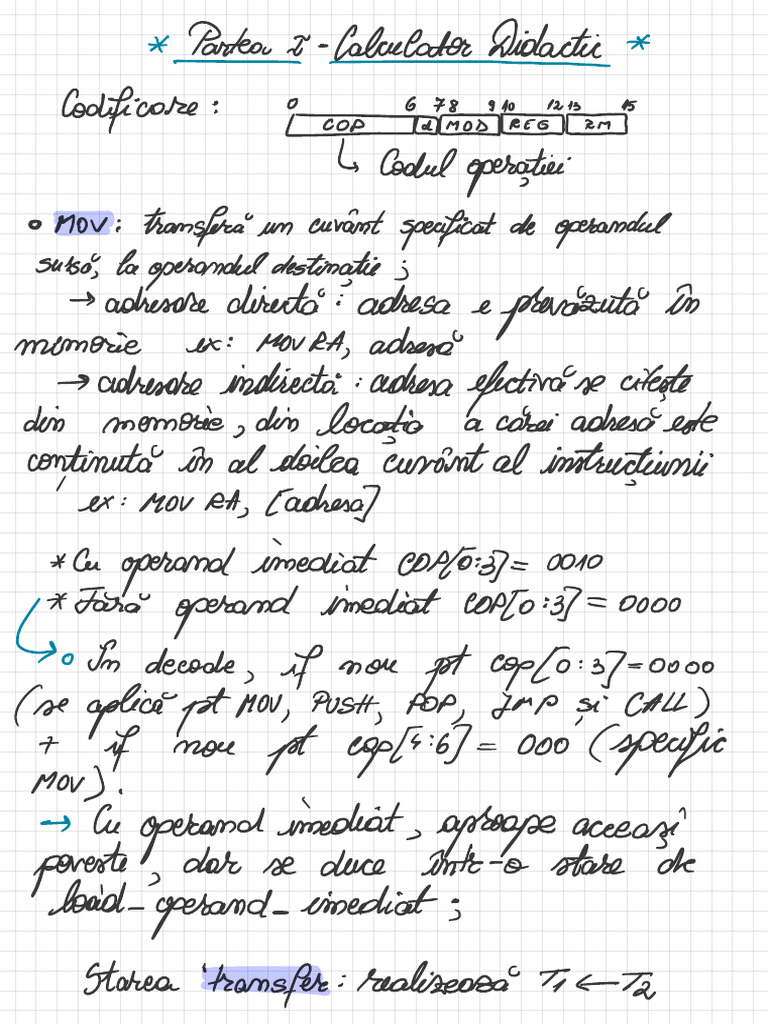 * Partea I - Calculator Didactic *
Codificare:
0 6 7 8 9 10 12 13 15
COP d MOD REG RM
↳ Codul operației
• MOV: transferă un cuvânt specificat de operandul
sursă, la operandul destinație;
→ adresare directă: adresa e prevăzută în
memorie ex: MOV RA, adresă
→ adresare indirectă: adresa efectivă se citește
din memorie, din locația a cărei adresă este
conținută în al doilea cuvânt al instrucțiunii
ex: MOV RA, [adresa]
* Cu operand imediat COP[0:3] = 0010
* Fără operand imediat COP[0:3] = 0000
În decode, if nou pt cop[0:3] = 0000
(se aplică pt MOV, PUSH, POP, JMP și CALL)
+ if nou pt cop[4:6] = 000 (specific
MOV).
→ Cu operand imediat, aproape aceeași
poveste, dar se duce într-o stare de
load_operand_imediat;
Starea transfer: realizează T1 ← T2